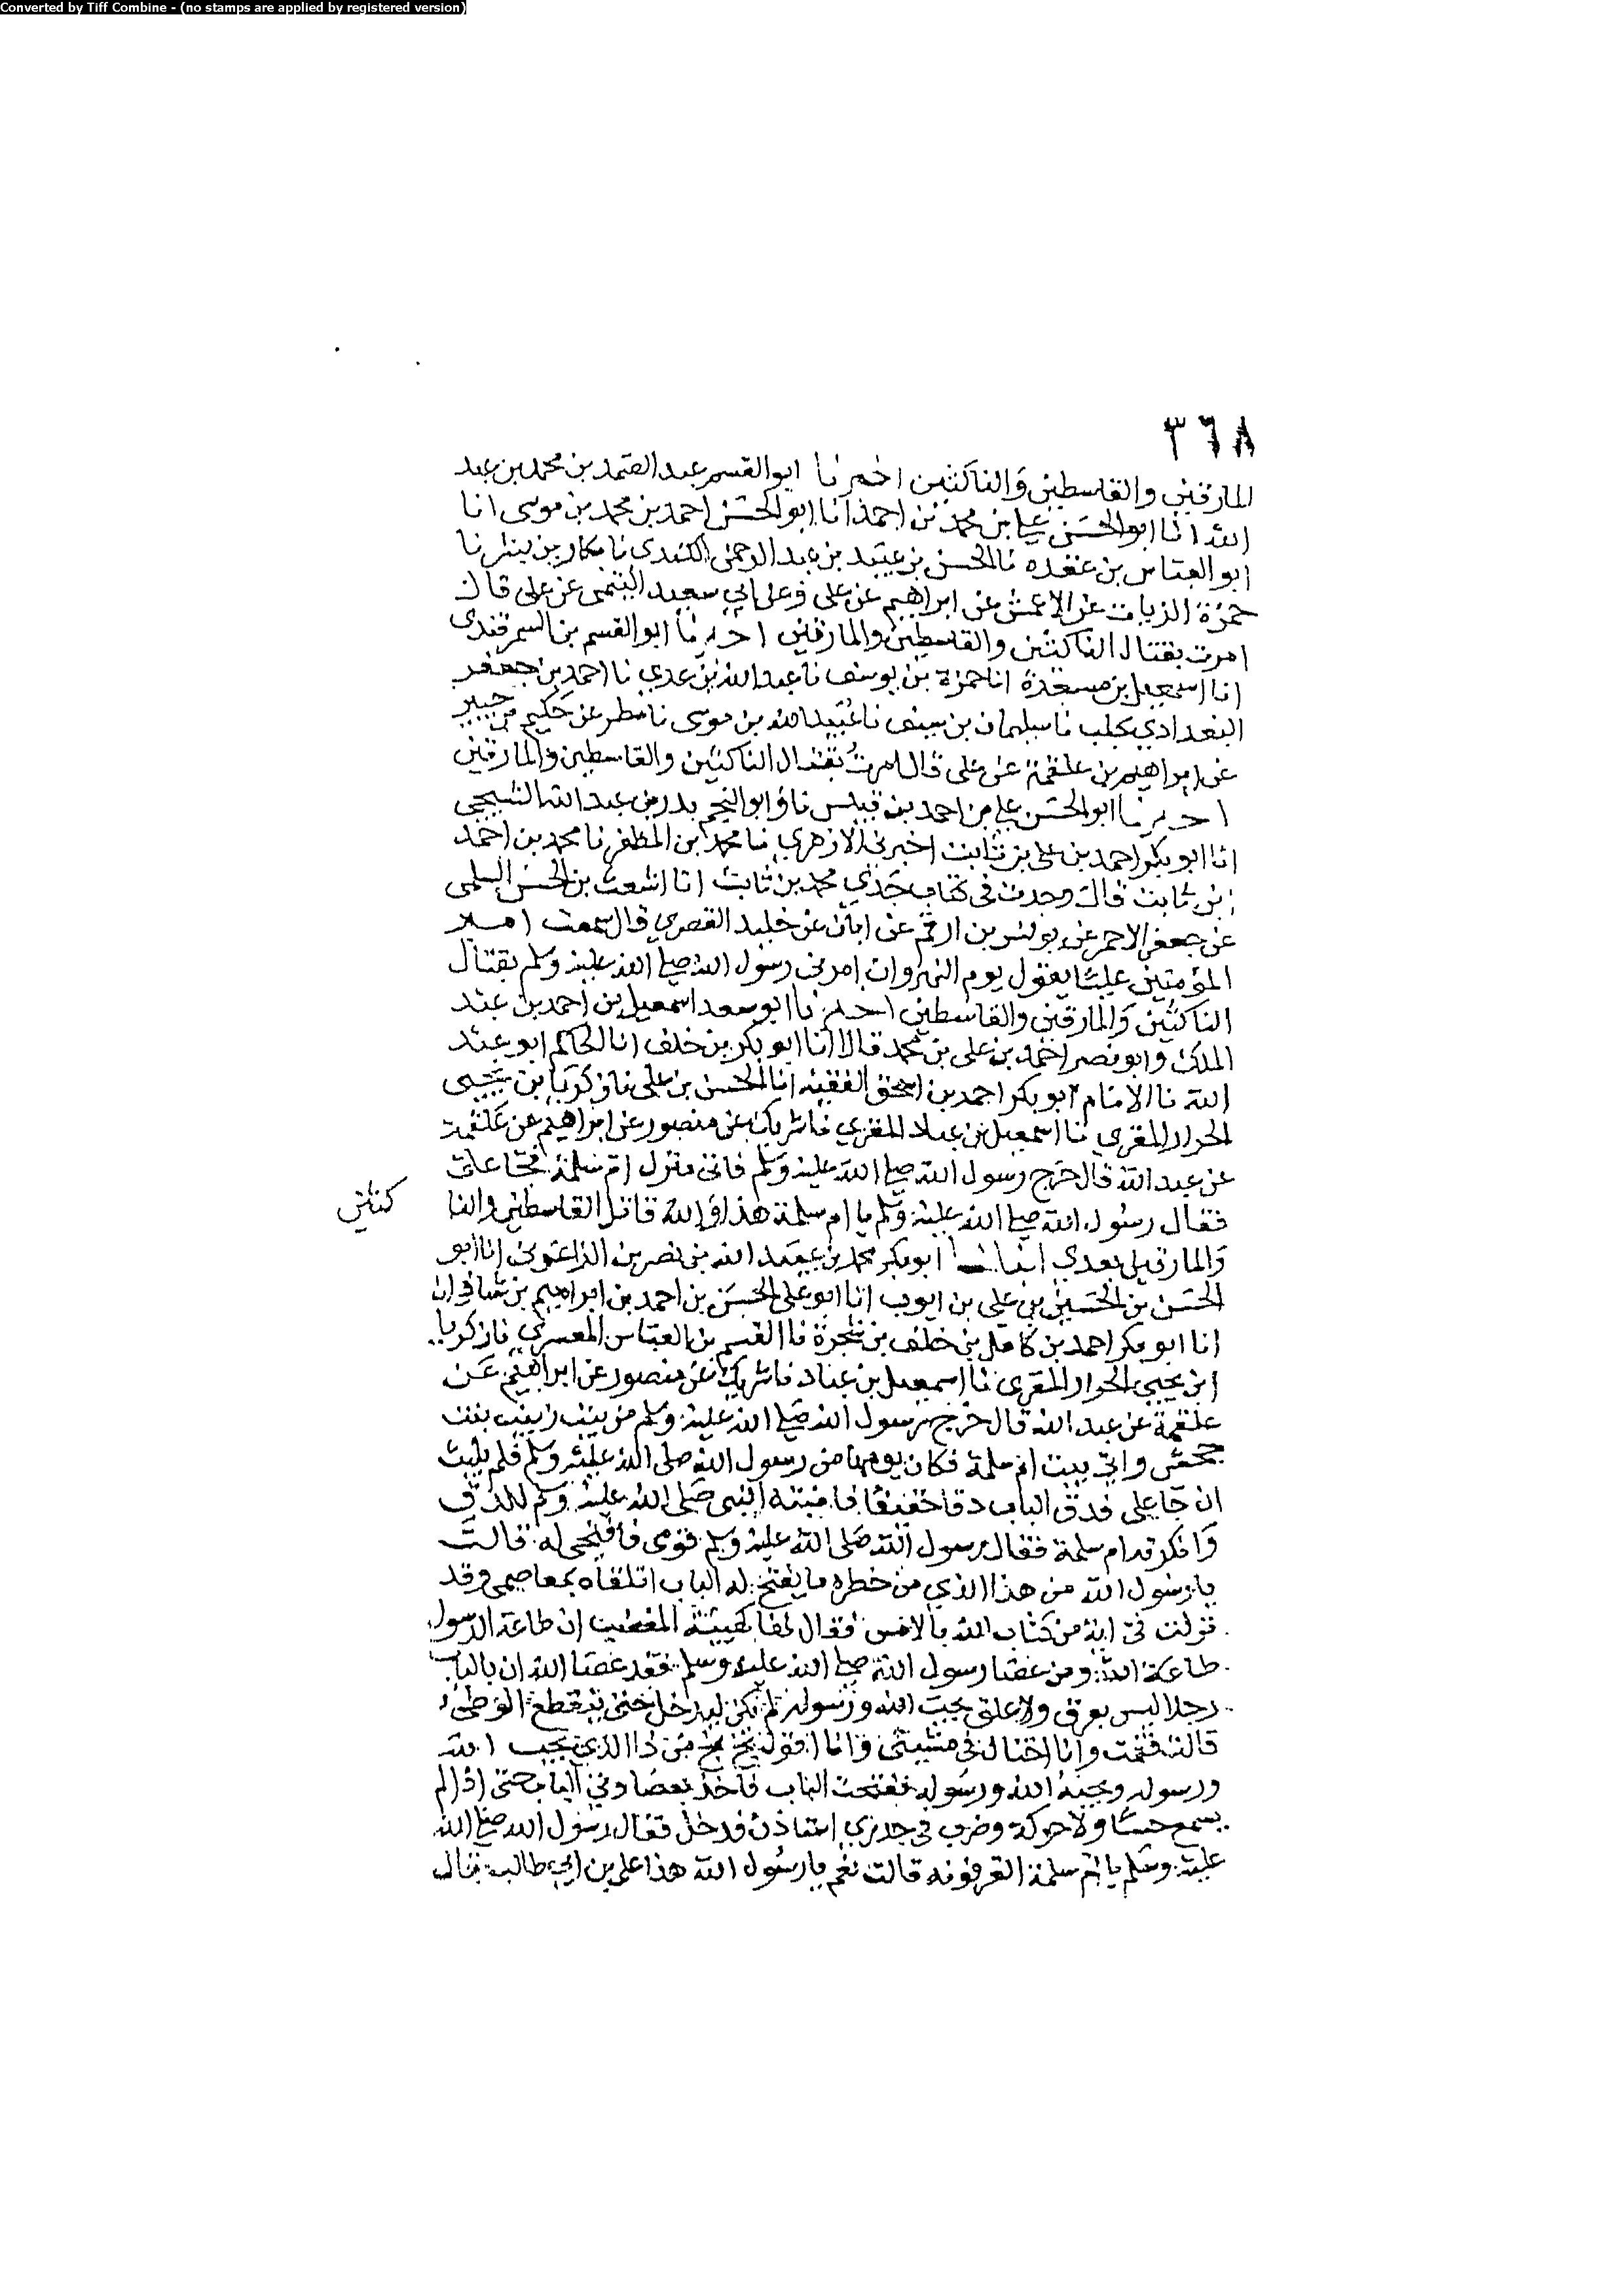 Converted by Tiff Combine - (no stamps are applied by registered version)
٣٦٨
المارقين والقاسطين والناكثين اخبرنا ابو القسم عبد الصمد بن محمد بن عبد
الله انا ابو الحسن علي بن محمد بن احمد انا ابو الحسن احمد بن محمد بن موسى انا
ابو العباس بن عقده نا الحسن بن عبيد بن عبد الرحمن الكندي نا بكار بن بشر نا
حمزة الزيات عن الاعمش عن ابراهيم عن علي وعن ابي سعيد التيمي عن علي قال
امرت بقتال الناكثين والقاسطين والمارقين اخبرنا ابو القسم بن السمرقندي
انا اسمعيل بن مسعدة انا حمزة بن يوسف نا عبد الله بن عدي نا احمد بن جعفر
البغدادي بحلب نا سليمان بن سيف نا عبيد الله بن موسى نا مطر عن حكيم بن جبير
عن ابراهيم بن علقمة عن علي قال امرت بقتال الناكثين والقاسطين والمارقين
اخبرنا ابو الحسن علي بن احمد بن قبيس نا وابو النجم بدر بن عبد الله الشيحي
انا ابو بكر احمد بن علي بن ثابت اخبرني الازهري نا محمد بن المظفر نا محمد بن احمد
ابن ثابت قال وجدت في كتاب جدي محمد بن ثابت انا اشعث بن الحسن السلمي
عن جعفر الاحمر عن يونس بن ارقم عن ابان عن خليد القصري قال سمعت امير
المؤمنين عليا يقول يوم النهروان امرني رسول الله صلى الله عليه وسلم بقتال
الناكثين والمارقين والقاسطين اخبرنا ابو سعد اسمعيل بن احمد بن عبد
الملك وابو نصر احمد بن علي بن محمد قالا انا ابو بكر بن خلف انا الحاكم ابو عبد
الله نا الامام ابو بكر احمد بن اسحق الفقيه انا الحسن بن علي نا زكريا بن يحيى
الحرار المقري نا اسمعيل بن عباد المقري نا شريك عن منصور عن ابراهيم عن علقمة
عن عبد الله قال خرج رسول الله صلى الله عليه وسلم فاتى منزل ام سلمة فجا علي
فقال رسول الله صلى الله عليه وسلم يا ام سلمة هذا والله قاتل القاسطين والنا
كثين
والمارقين بعدي انبانا ابو بكر محمد بن عبيد الله بن نصر بن الزاغوني انا ابو
الحسن بن الحسين بن علي بن ايوب انا ابو علي الحسن بن احمد بن ابراهيم بن شاذان
انا ابو بكر احمد بن كامل بن خلف بن شجرة نا القسم بن العباس المعسري نا زكريا
ابن يحيى الحرار المقري نا اسمعيل بن عباد نا شريك عن منصور عن ابراهيم عن
علقمة عن عبد الله قال خرج رسول الله صلى الله عليه وسلم من بيت زينب بنت
جحش واتى بيت ام سلمة فكان يومها من رسول الله صلى الله عليه وسلم فلم يلبث
ان جا علي فدق الباب دقا خفيفا فانتبه النبي صلى الله عليه وسلم للدق
وانكرته ام سلمة فقال رسول الله صلى الله عليه وسلم قومي فافتحي له قالت
يا رسول الله من هذا الذي من خطره ما يفتح له الباب اتلقاه بمعاصمي وقد
نزلت في اية من كتاب الله بالامس فقال لها كهيئة المغضب ان طاعة الرسول
طاعة الله ومن عصا رسول الله صلى الله عليه وسلم فقد عصا الله ان بالباب
رجلا ليس بعرق ولا علق يحب الله ورسوله لم يكن ليدخل حتى ينقطع الوطئ
قالت فقمت وانا اختال في مشيتي وانا اقول بخ بخ من ذا الذي يحب الله
ورسوله ويحبه الله ورسوله ففتحت الباب فاخذ بعضادتي الباب حتى اذا لم
يسمع حسا ولا حركة وصرت في خدري استاذن فدخل فقال رسول الله صلى الله
عليه وسلم يا ام سلمة اتعرفونه قالت نعم يا رسول الله هذا علي بن ابي طالب قال